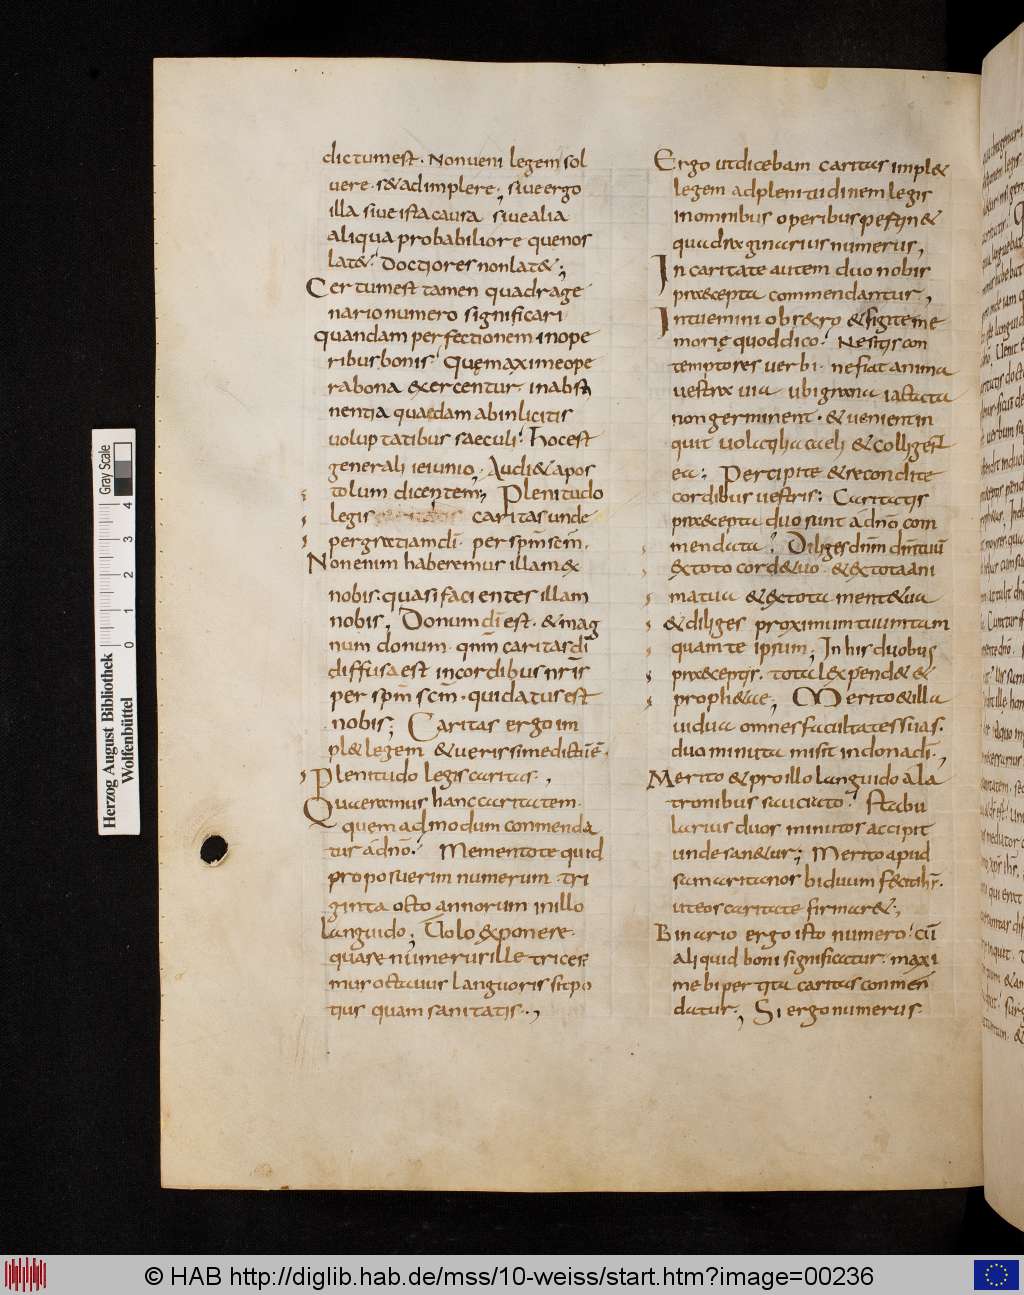 dictum est. Non ueni legem sol
uere. s& ad implere; siue ergo
illa siue ista causa siue alia
aliqua probabiliore que nos
lat&. Doctiores non lat&;
Certum est tamen quadrage
nario numero significari
quandam perfectionem in ope
ribus bonis. Quę maxime ope
ra bona exercentur in absti
nentia quaedam ab inlicitis
uoluptatibus saeculi. hoc est
generali ieiunio. Audi & apos
tolum dicentem; Plenitudo
legis caritas unde
per gratiam dī. per sp̄m sc̄m.
Non enim haberemus illam ex
nobis. quasi facientes illam
nobis, Donum dī est. & mag
num donum. qnm̄ caritas dī
diffusa est in cordibus nr̄is
per sp̄m sc̄m. qui datus est
nobis; Caritas ergo im
pl& legem & uerissime dictū ē.
Plenitudo legis caritas.,
Quaeramus hanc caritatem.
quem ad modum conmenda
tur a dn̄o. Mementote quid
proposuerim numerum tri
ginta octo annorum in illo
languido; Uolo exponere.
quare numerus ille trices
mus octauus languoris sit po
tius quam sanitatis.,
Ergo ut dicebam caritas impl&
legem ad plenitudinem legis
in omnibus operibus pertin&
quadraginarius numerus,
In caritate autem duo nobis
praecepta commendantur.,
Intuemini obsecro & figite me
morię quod dico. Ne sitis con
temptores uerbi. ne fiat anima
uestra uia ubi grana iactata
non germinent. & uenient in
quit uolatilia caeli & colligest
ea; Percipite & recondite
cordibus uestris: Caritatis
praecepta duo sunt a dn̄o com
mendata. Diliges dnm̄ dm̄ tuū
ex toto cord& uo. & ex tota ani
ma tua & ex tota ment& ua
& diliges proximum tuum tam
quam te ipsum, In his duobus
praeceptis. tota lex pend& &
proph&ae; Merito & illa
uidua omnes facultates suas.
duo minuta misit in dona dī.,
Merito & pro illo languido a la
tronibus sauciato. stabu
larius duos minutos accipit
unde san&ur; Merito apud
samaritanos biduum fecit ih̄s.
ut eos caritate firmar&;
Binario ergo isto numero. cū
aliquid boni significatur. maxi
me bipertita caritas conmen
datur., Si ergo numerus
Herzog August Bibliothek
Wolfenbüttel
Gray Scale
0 1 2 3 4
© HAB http://diglib.hab.de/mss/10-weiss/start.htm?image=00236